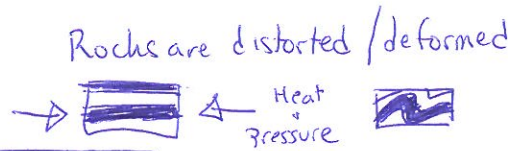 Rocks are distorted / deformed
Heat
+
Pressure